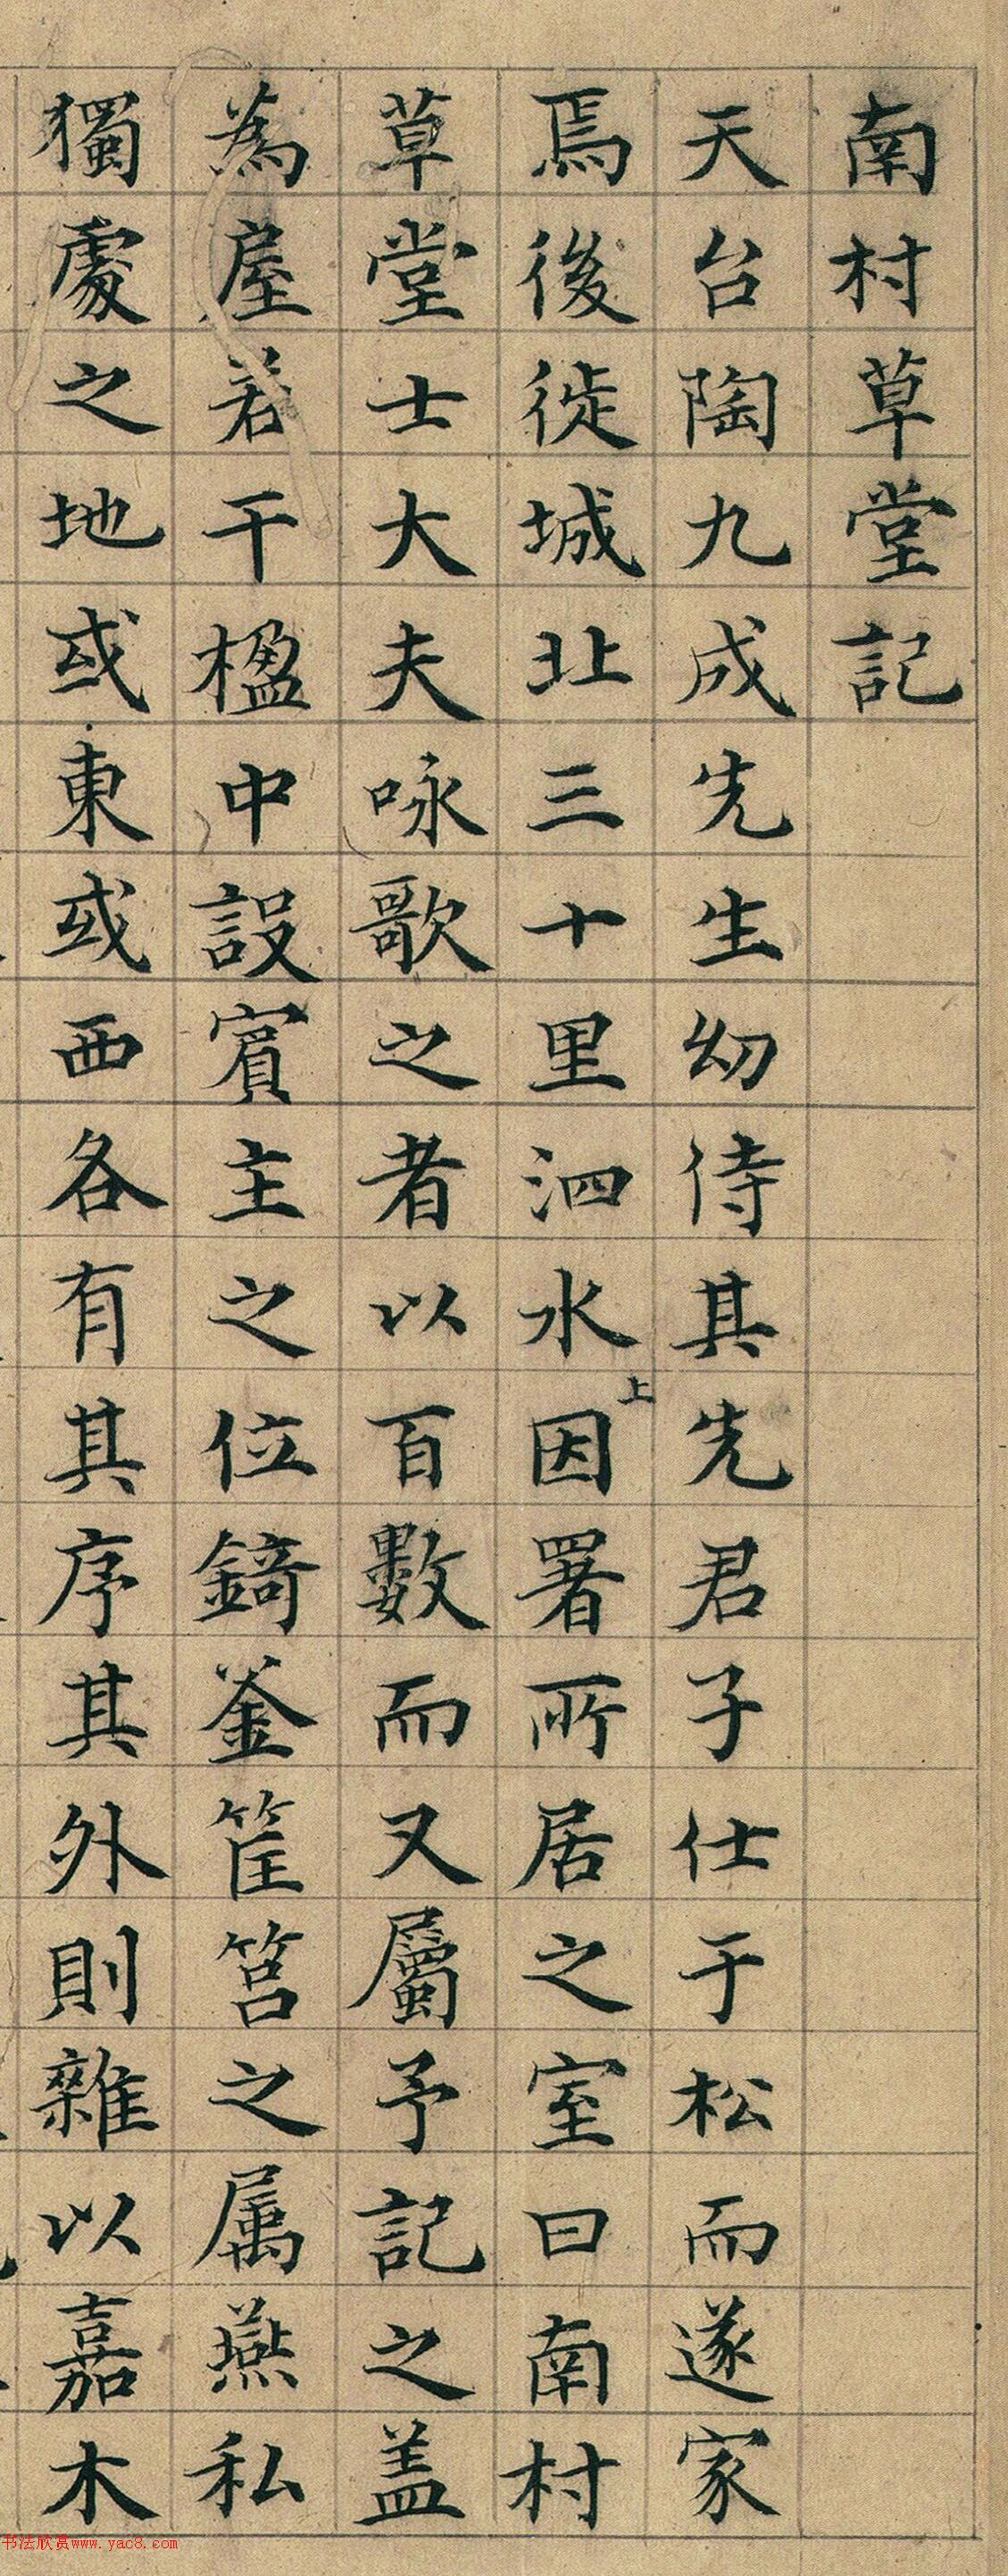 南村草堂記
天台陶九成先生幼侍其先君子仕于松而遂家
焉後徙城北三十里泗水上因署所居之室曰南村
草堂士大夫咏歌之者以百數而又屬予記之盖
為屋若干楹中設賓主之位錡釜筐筥之属燕私
獨處之地或東或西各有其序其外則雜以嘉木
书法欣赏www.yac8.com